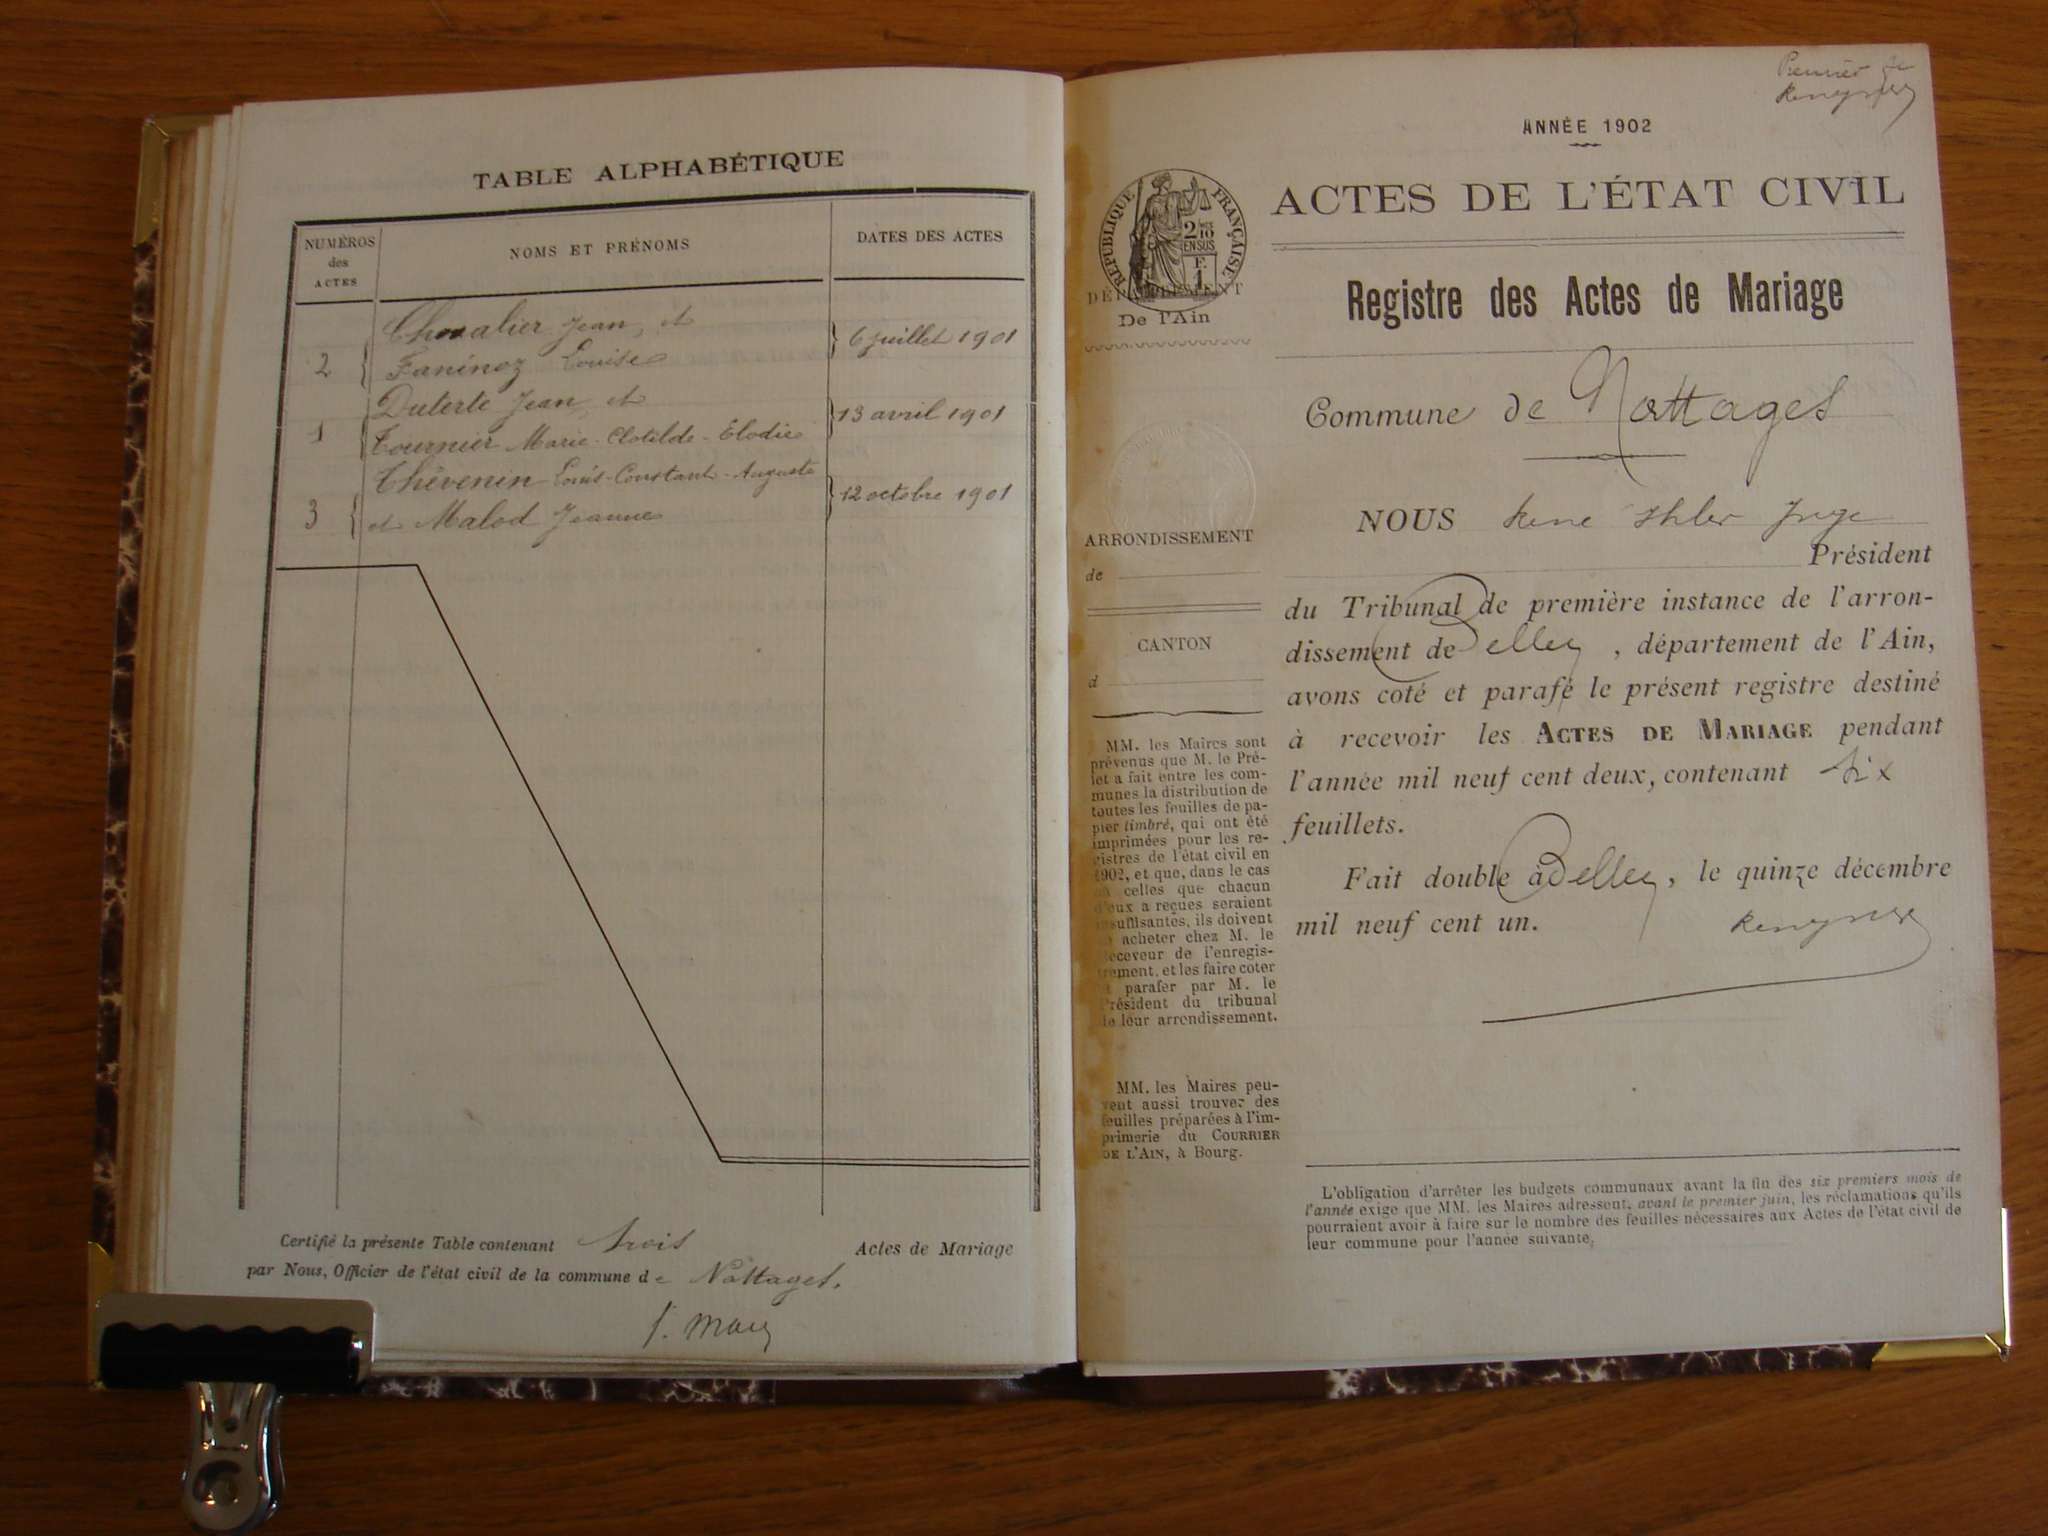 TABLE ALPHABÉTIQUE
NUMÉROS
des
ACTES
NOMS ET PRÉNOMS
DATES DES ACTES
Chevalier Jean, et
2 { Faninoz Louise } 6 juillet 1901
Duterte Jean, et
1 { Tournier Marie-Clotilde-Élodie } 13 avril 1901
Thévenin Louis-Constant-Auguste
3 { et Malod Jeanne } 12 octobre 1901
Certifié la présente Table contenant trois Actes de Mariage
par Nous, Officier de l'état civil de la commune de Nattages.
J. Mary
Premier
ANNÉE 1902
ACTES DE L'ÉTAT CIVIL
RÉPUBLIQUE FRANÇAISE
2/10
EN SUS
F.
1
DÉPARTEMENT
De l'Ain
Registre des Actes de Mariage
Commune de Nattages
ARRONDISSEMENT
de
CANTON
d
MM. les Maires sont
prévenus que M. le Pré-
fet a fait entre les com-
munes la distribution de
toutes les feuilles de pa-
pier timbré, qui ont été
imprimées pour les re-
gistres de l'état civil en
1902, et que, dans le cas
où celles que chacun
d'eux a reçues seraient
insuffisantes, ils doivent
en acheter chez M. le
Receveur de l'enregis-
trement, et les faire coter
et parafer par M. le
Président du tribunal
de leur arrondissement.
MM. les Maires peu-
vent aussi trouver des
feuilles préparées à l'im-
primerie du COURRIER
DE L'AIN, à Bourg.
NOUS René Juge
Président
du Tribunal de première instance de l'arron-
dissement de Belley, département de l'Ain,
avons coté et parafé le présent registre destiné
à recevoir les ACTES DE MARIAGE pendant
l'année mil neuf cent deux, contenant six
feuillets.
Fait double à Belley, le quinze décembre
mil neuf cent un.
L'obligation d'arrêter les budgets communaux avant la fin des six premiers mois de
l'année exige que MM. les Maires adressent, avant le premier juin, les réclamations qu'ils
pourraient avoir à faire sur le nombre des feuilles nécessaires aux Actes de l'état civil de
leur commune pour l'année suivante.